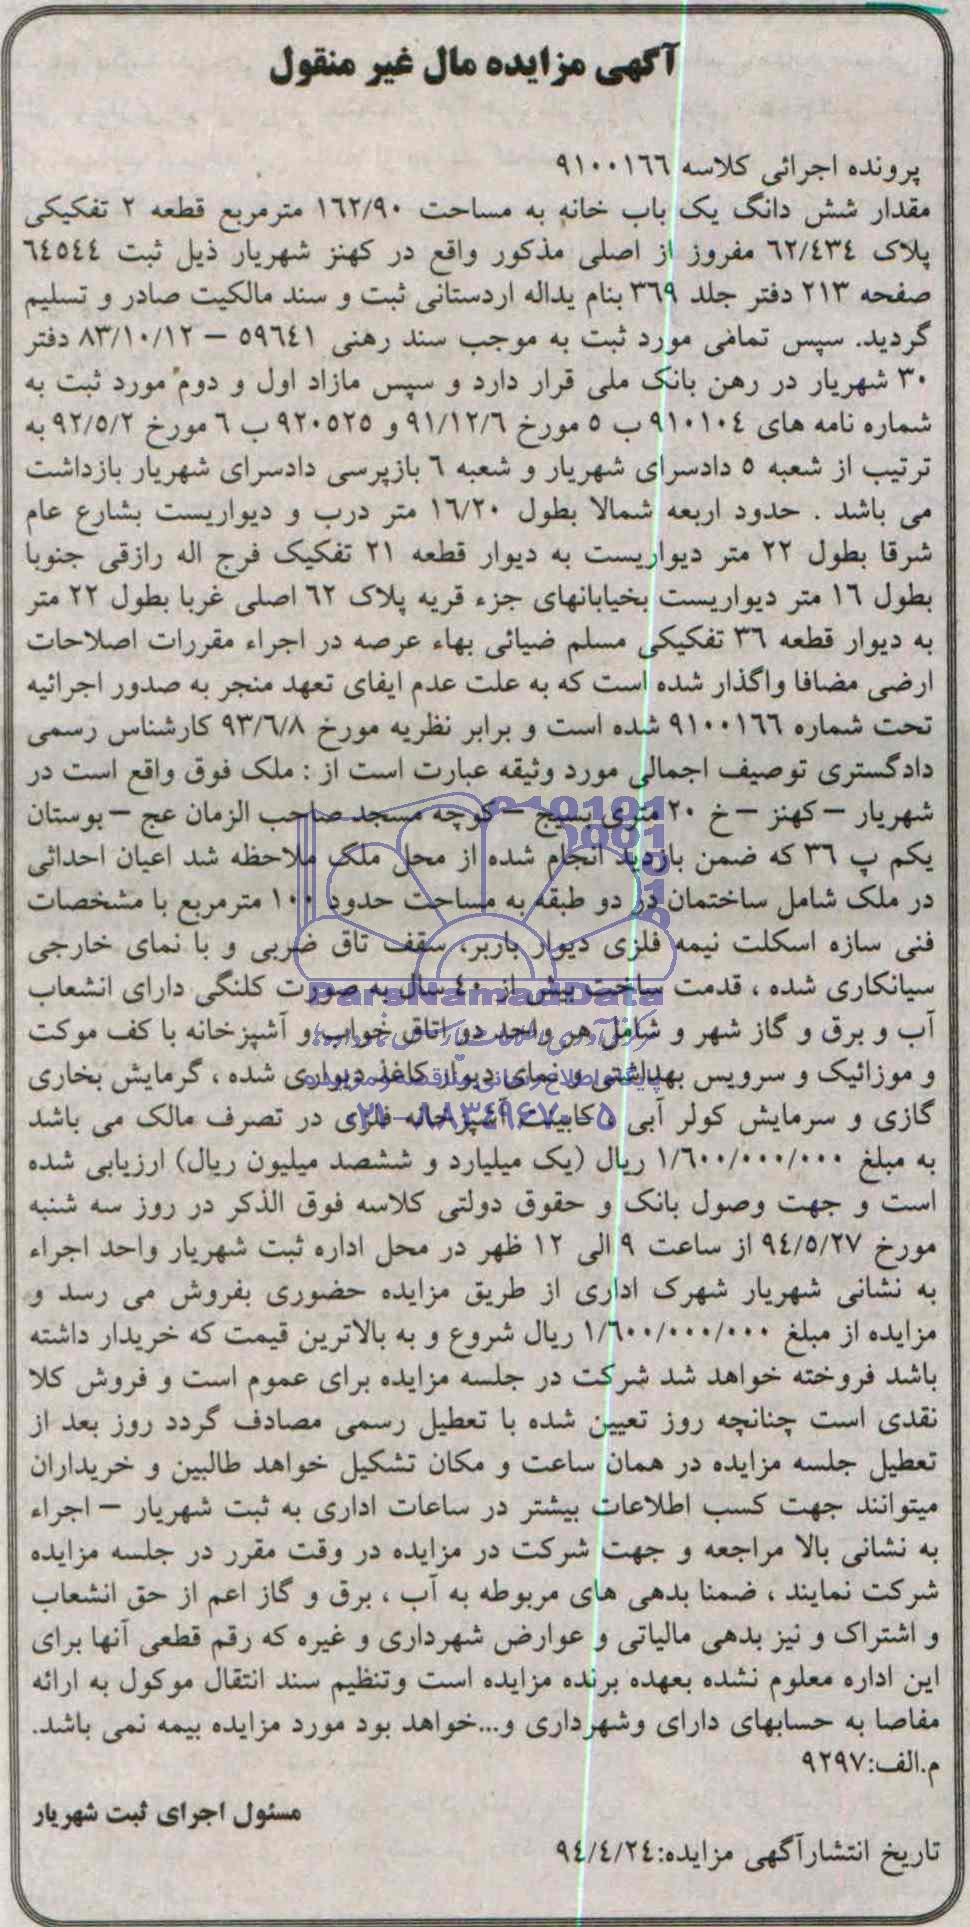 آگهی مزایده مال غیر منقول
پرونده اجرائی کلاسه ۹۱۰۰۱۶۶
مقدار شش دانگ یک باب خانه به مساحت ۱۶۲/۹۰ مترمربع قطعه ۲ تفکیکی
پلاک ۶۲/٤۳٤ مفروز از اصلی مذکور واقع در کهنز شهریار ذیل ثبت ۶٤۵٤٤
صفحه ۲۱۳ دفتر جلد ۳۶۹ بنام یداله اردستانی ثبت و سند مالکیت صادر و تسلیم
گردید. سپس تمامی مورد ثبت به موجب سند رهنی ۵۹۶٤۱ – ۸۳/۱۰/۱۲ دفتر
۳۰ شهریار در رهن بانک ملی قرار دارد و سپس مازاد اول و دوم مورد ثبت به
شماره نامه های ۹۱۰۱۰٤ ب ۵ مورخ ۹۱/۱۲/۶ و ۹۲۰۵۲۵ ب ۶ مورخ ۹۲/۵/۲ به
ترتیب از شعبه ۵ دادسرای شهریار و شعبه ۶ بازپرسی دادسرای شهریار بازداشت
می باشد . حدود اربعه شمالا بطول ۱۶/۲۰ متر درب و دیواریست بشارع عام
شرقا بطول ۲۲ متر دیواریست به دیوار قطعه ۲۱ تفکیک فرج اله رازقی جنوبا
بطول ۱۶ متر دیواریست بخیابانهای جزء قریه پلاک ۶۲ اصلی غربا بطول ۲۲ متر
به دیوار قطعه ۳۶ تفکیکی مسلم ضیائی بهاء عرصه در اجراء مقررات اصلاحات
ارضی مضافا واگذار شده است که به علت عدم ایفای تعهد منجر به صدور اجرائیه
تحت شماره ۹۱۰۰۱۶۶ شده است و برابر نظریه مورخ ۹۳/۶/۸ کارشناس رسمی
دادگستری توصیف اجمالی مورد وثیقه عبارت است از : ملک فوق واقع است در
شهریار – کهنز – خ ۲۰ متری بسیج – کوچه مسجد صاحب الزمان عج – بوستان
یکم پ ۳۶ که ضمن بازدید انجام شده از محل ملک ملاحظه شد اعیان احداثی
در ملک شامل ساختمان در دو طبقه به مساحت حدود ۱۰۰ مترمربع با مشخصات
فنی سازه اسکلت نیمه فلزی دیوار باربر، سقف تاق ضربی و با نمای خارجی
سیانکاری شده ، قدمت ساخت بیش از ٤۰ سال به صورت کلنگی دارای انشعاب
ParsNamadData
آب و برق و گاز شهر و شامل هر واحد دو اتاق خواب و آشپزخانه با کف موکت
و موزائیک و سرویس بهداشتی و نمای دیوار کاغذ دیواری شده ، گرمایش بخاری
گازی و سرمایش کولر آبی ، کابینت آشپزخانه فلزی در تصرف مالک می باشد
۰۲۱–۸۸۳٤۹۶۷۰–۵
به مبلغ ۱/۶۰۰/۰۰۰/۰۰۰ ریال (یک میلیارد و ششصد میلیون ریال) ارزیابی شده
است و جهت وصول بانک و حقوق دولتی کلاسه فوق الذکر در روز سه شنبه
مورخ ۹٤/۵/۲۷ از ساعت ۹ الی ۱۲ ظهر در محل اداره ثبت شهریار واحد اجراء
به نشانی شهریار شهرک اداری از طریق مزایده حضوری بفروش می رسد و
مزایده از مبلغ ۱/۶۰۰/۰۰۰/۰۰۰ ریال شروع و به بالاترین قیمت که خریدار داشته
باشد فروخته خواهد شد شرکت در جلسه مزایده برای عموم است و فروش کلا
نقدی است چنانچه روز تعیین شده با تعطیل رسمی مصادف گردد روز بعد از
تعطیل جلسه مزایده در همان ساعت و مکان تشکیل خواهد طالبین و خریداران
میتوانند جهت کسب اطلاعات بیشتر در ساعات اداری به ثبت شهریار – اجراء
به نشانی بالا مراجعه و جهت شرکت در مزایده در وقت مقرر در جلسه مزایده
شرکت نمایند ، ضمنا بدهی های مربوطه به آب ، برق و گاز اعم از حق انشعاب
و اشتراک و نیز بدهی مالیاتی و عوارض شهرداری و غیره که رقم قطعی آنها برای
این اداره معلوم نشده بعهده برنده مزایده است وتنظیم سند انتقال موکول به ارائه
مفاصا به حسابهای دارای وشهرداری و...خواهد بود مورد مزایده بیمه نمی باشد.
م.الف:۹۲۹۷
مسئول اجرای ثبت شهریار
تاریخ انتشارآگهی مزایده:۹٤/٤/۲٤